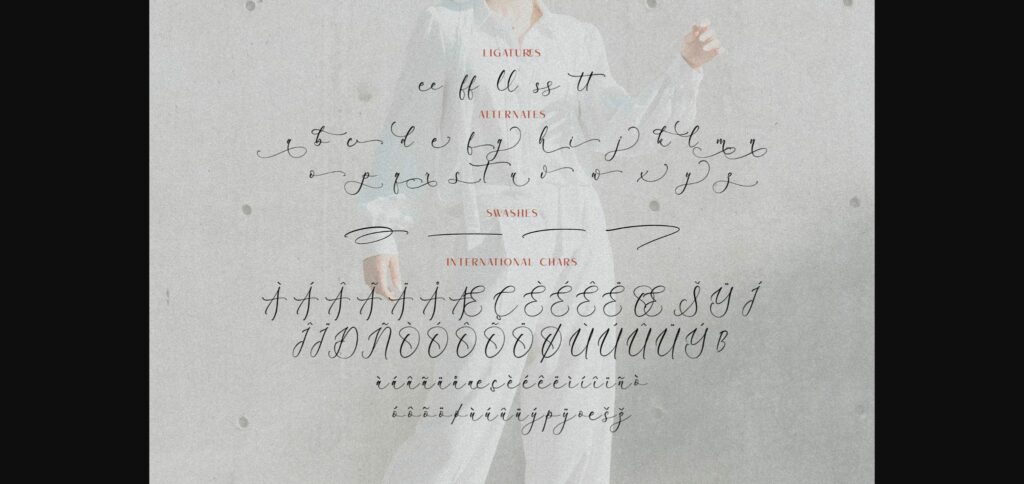 LIGATURES
ee ff ll ss tt
ALTERNATES
a b c d e f g h i j k l m n
o p q r s t u v w x y z
SWASHES
INTERNATIONAL CHARS
À Á Â Ã Ä Å Æ Ç È É Ê Ë Œ Š Ÿ Í
Î Ï Ð Ñ Ò Ó Ô Õ Ö Ø Ù Ú Û Ü Ý ß
à á â ã ä å æ ç è é ê ë ì í î ï ñ ò
ó ô õ ö ø ù ú û ü ý þ ÿ œ š ž